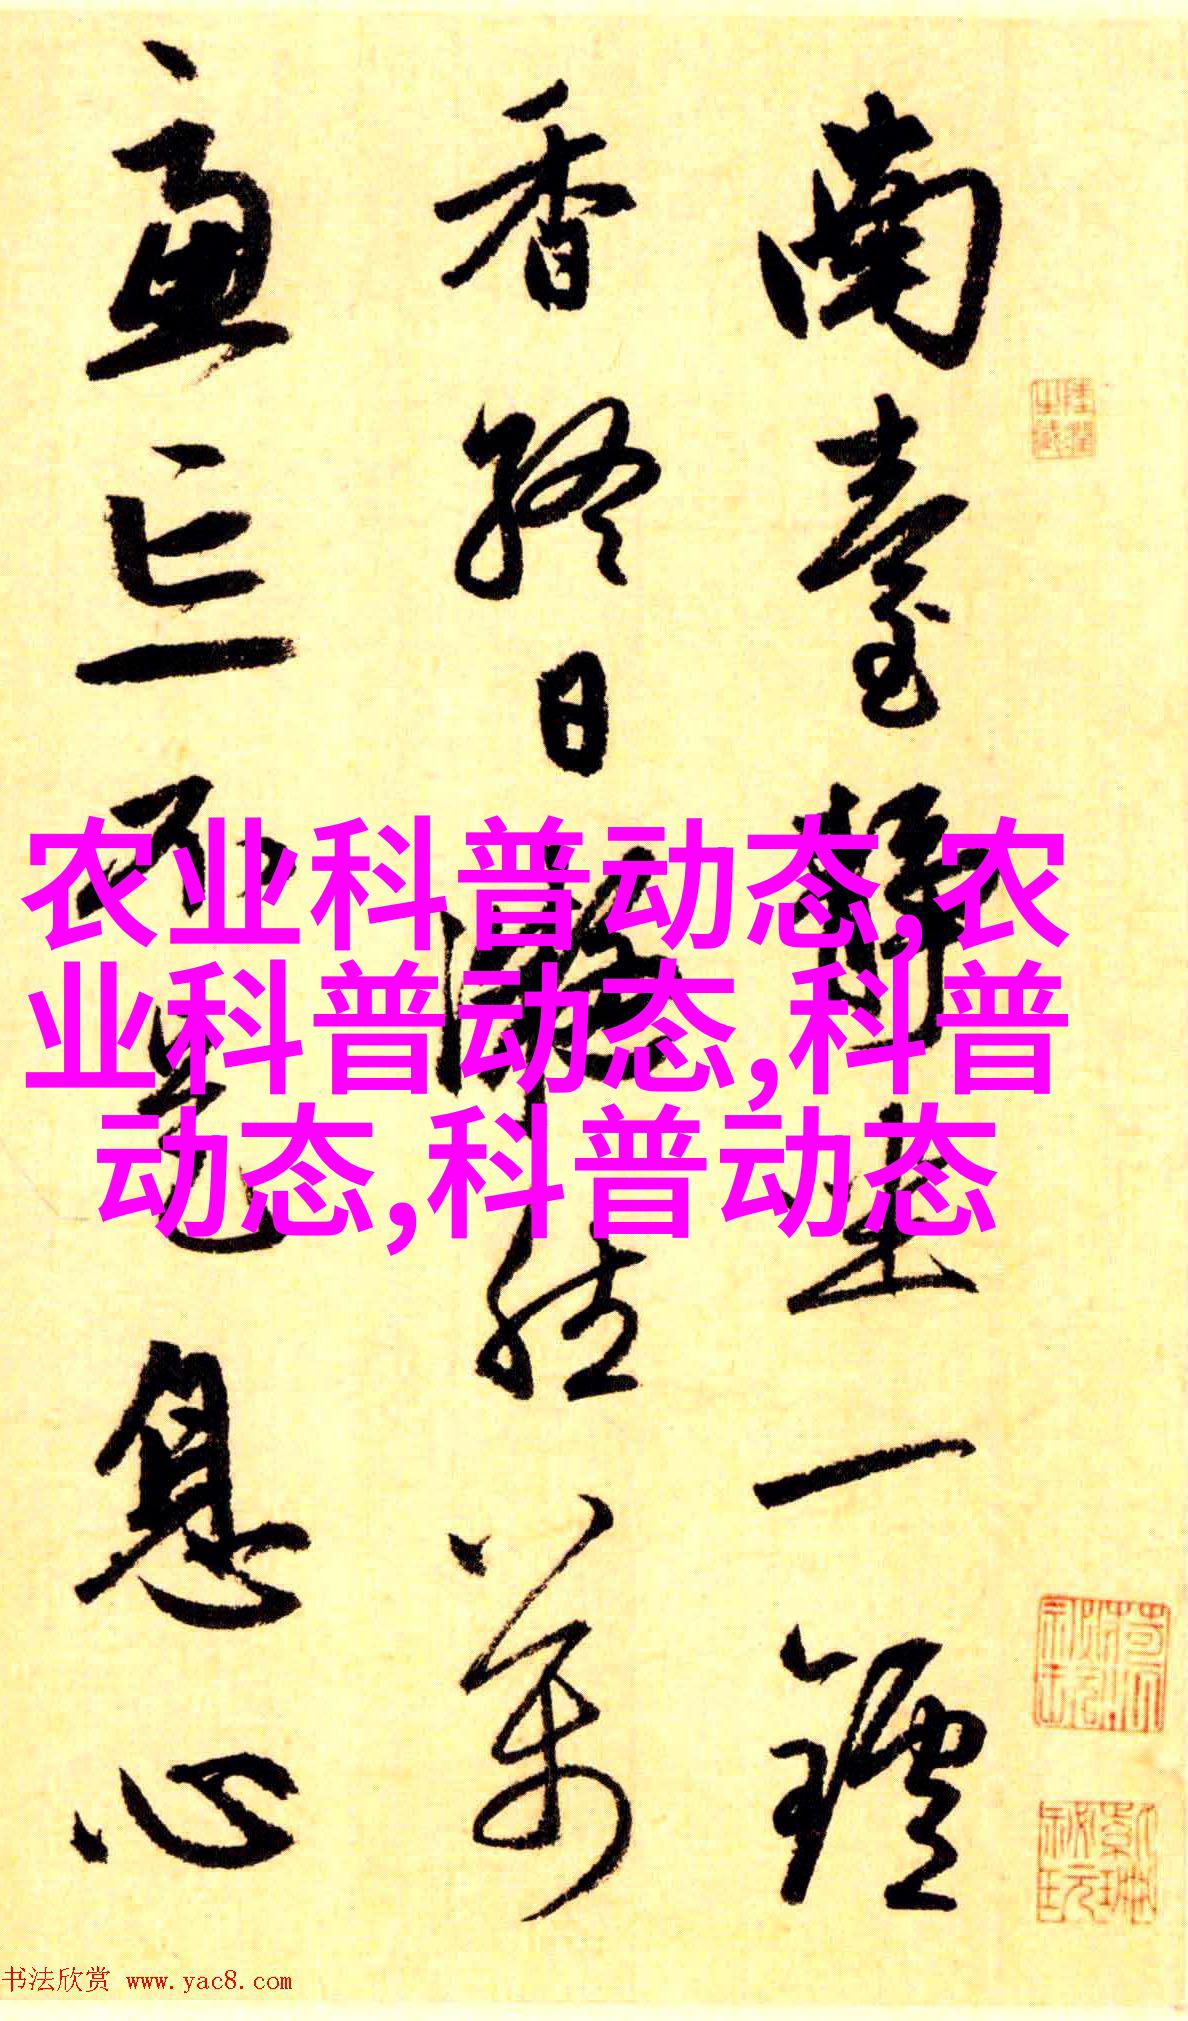 南臺靜坐一鑪
香終日凝然萬
慮亡不是息心
农业科普动态,农
业科普动态,科普
动态,科普动态
书法欣赏 www.yac8.com